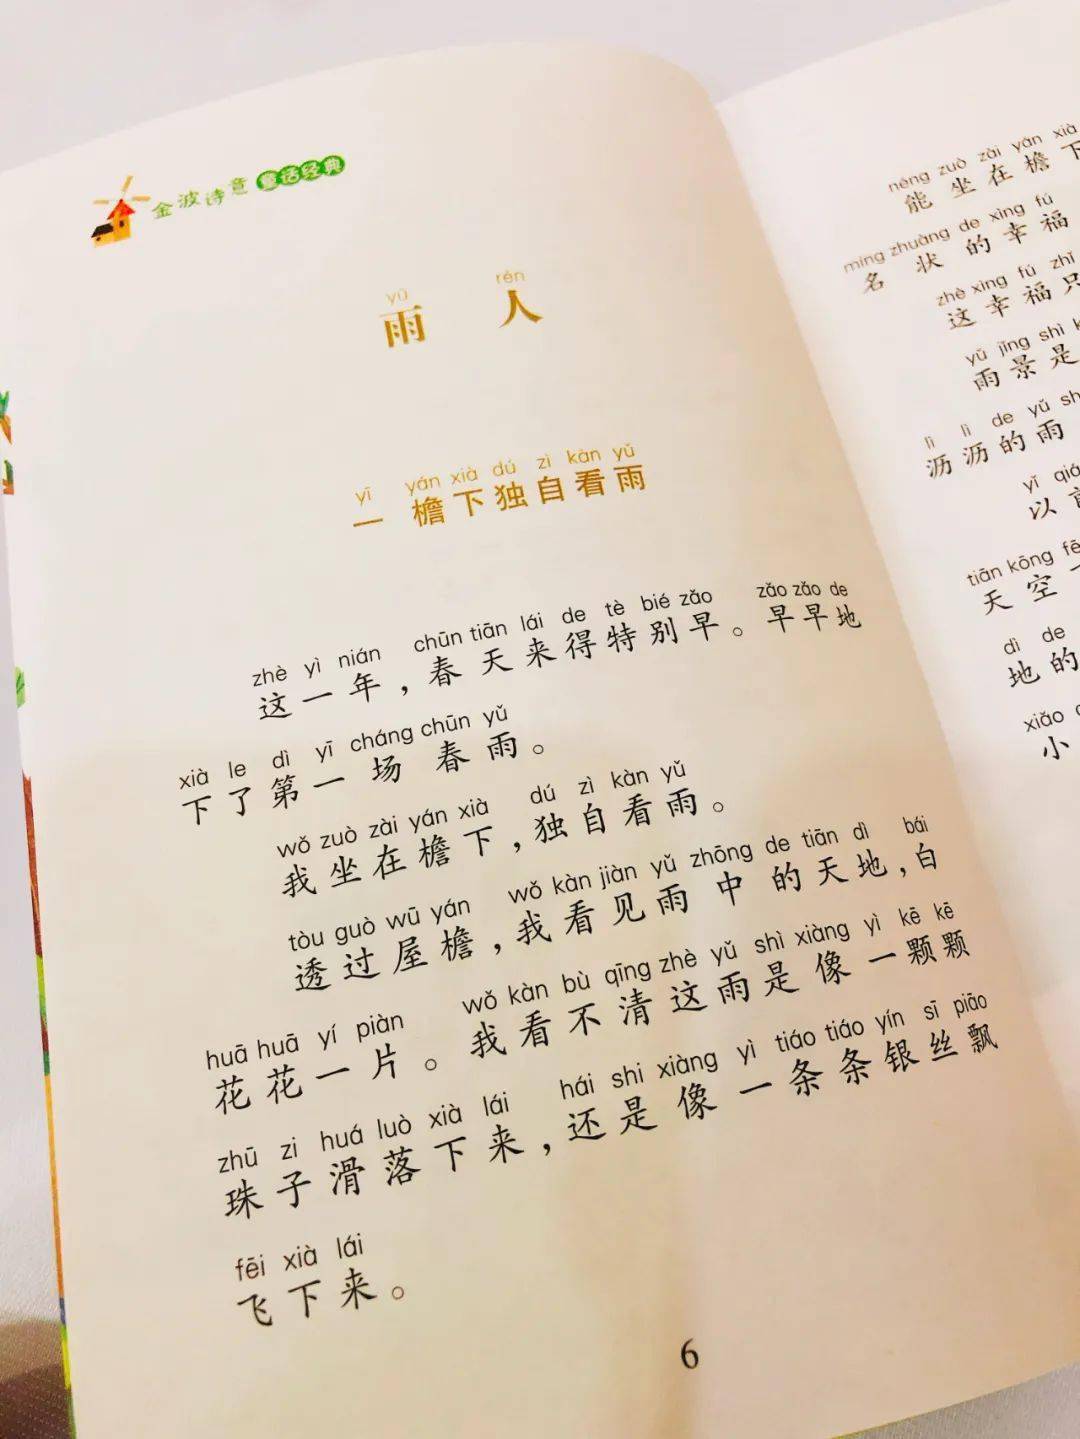 金波诗意 童话经典
yǔ rén
雨 人
yī yán xià dú zì kàn yǔ
一 檐下独自看雨
zhè yì nián chūn tiān lái de tè bié zǎo zǎo zǎo de
这一年，春天来得特别早。早早地
xià le dì yī cháng chūn yǔ
下了第一场春雨。
wǒ zuò zài yán xià dú zì kàn yǔ
我坐在檐下，独自看雨。
tòu guò wū yán wǒ kàn jiàn yǔ zhōng de tiān dì bái
透过屋檐，我看见雨中的天地，白
huā huā yí piàn wǒ kàn bù qīng zhè yǔ shì xiàng yì kē kē
花花一片。我看不清这雨是像一颗颗
zhū zi huá luò xià lái hái shi xiàng yì tiáo tiáo yín sī piāo
珠子滑落下来，还是像一条条银丝飘
fēi xià lái
飞下来。
6
néng zuò zài yán xià
能坐在檐下
míng zhuàng de xìng fú
名状的幸福
zhè xìng fú zhǐ
这幸福只
yǔ jǐng shì
雨景是
lì lì de yǔ
沥沥的雨
yǐ
以
tiān kōng
天空
dì de
地的
xiǎo
小